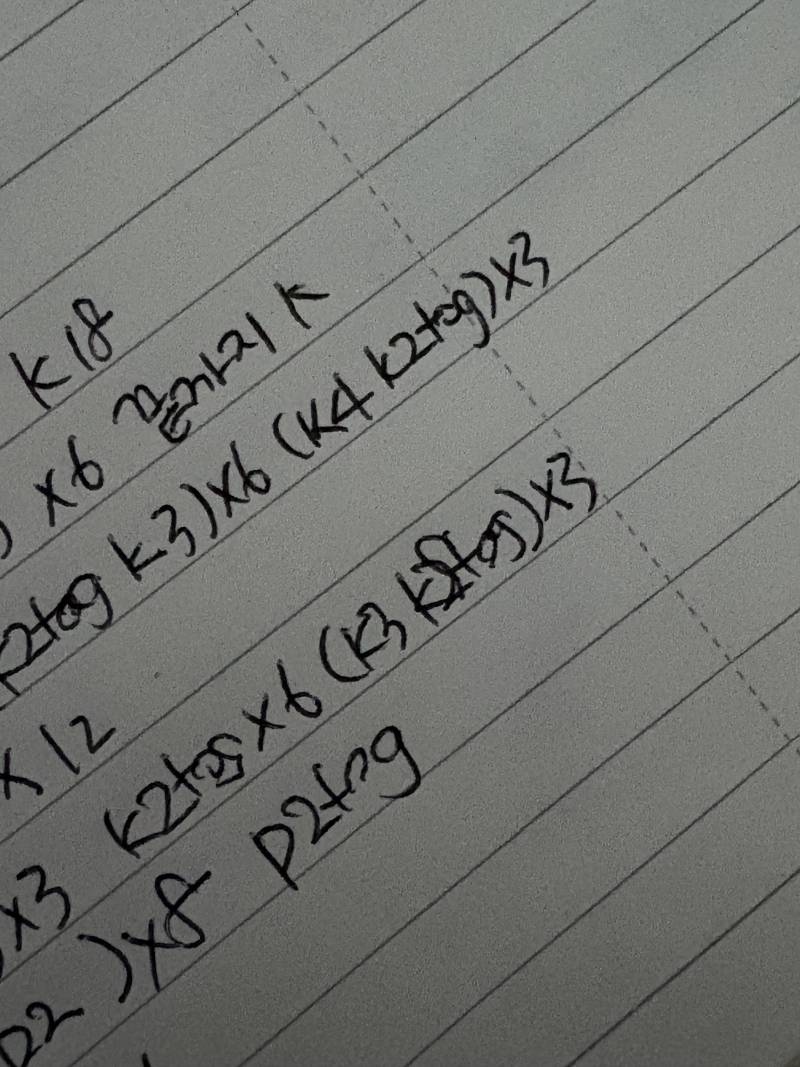 K18
) x6 끝까지 K
k2tog K3)x6 (K4 K2tog)x3
x 12
x3 K2tog x6 (K3 K2tog)x3
P2 )x8 P2tog